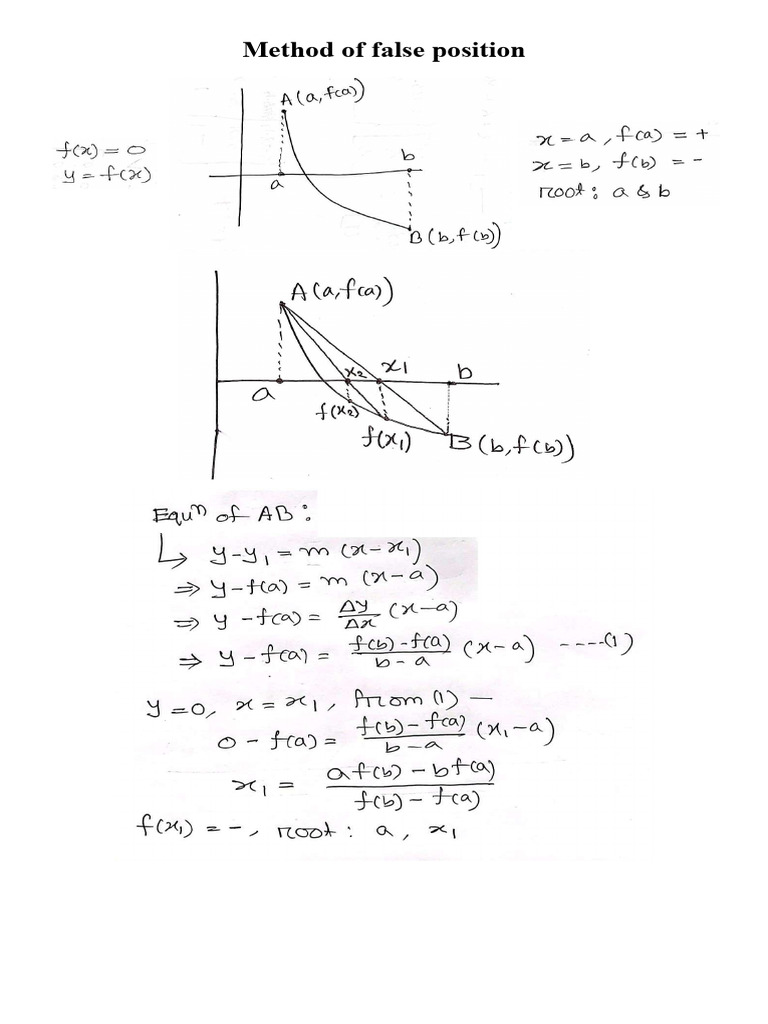 Method of false position
f(x) = 0
y = f(x)
A (a, f(a))
a
b
B (b, f(b))
x = a, f(a) = +
x = b, f(b) = -
root: a & b
A (a, f(a))
a
x2
x1
b
f(x2)
f(x1)
B (b, f(b))
Equⁿ of AB:
↳ y - y₁ = m (x - x₁)
⇒ y - f(a) = m (x - a)
⇒ y - f(a) = Δy/Δx (x - a)
⇒ y - f(a) = f(b) - f(a)/b - a (x - a) ----(1)
y = 0, x = x₁, from (1) —
0 - f(a) = f(b) - f(a)/b - a (x₁ - a)
x₁ = a f(b) - b f(a)/f(b) - f(a)
f(x₁) = -, root: a, x₁